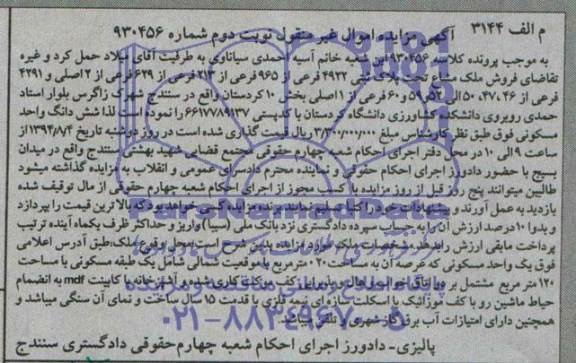 م الف ۳۱۴۴
آگهی مزایده اموال غیر منقول نوبت دوم شماره ۹۳۰۴۵۶
به موجب پرونده کلاسه ۹۳۰۴۵۶ این شعبه خانم آسیه احمدی سیاناوی به طرفیت آقای میلاد حمل کرد و غیره
تقاضای فروش ملک مشاع تحت پلاک ثبتی ۴۹۲۲ فرعی از ۹۶۵ فرعی از ۲۱۳ فرعی از ۶۲۹ فرعی از ۲ اصلی و ۴۲۹۱
فرعی از ۴۶، ۴۷، ۵۰ الی ۵۲ و ۵۹ و ۶۰ فرعی از ۱ اصلی بخش ۱۰ کردستان واقع در سنندج شهرک زاگرس بلوار استاد
احمدی روبروی دانشکده کشاورزی دانشگاه کردستان با کدپستی ۶۶۱۷۷۸۹۱۳۷ را نموده است لذا شش دانگ واحد
مسکونی فوق طبق نظر کارشناس مبلغ ریال قیمت گذاری شده است در روز دوشنبه تاریخ ۱۳۹۴/۸/۴ از
ساعت ۹ الی ۱۰ در محل دفتر اجرای احکام شعبه چهارم حقوقی مجتمع قضایی شهید بهشتی سنندج واقع در میدان
بسیج با حضور دادورز اجرای احکام حقوقی و نماینده محترم دادسرای عمومی و انقلاب به مزایده گذاشته میشود
طالبین میتوانند پنج روز قبل از روز مزایده با کسب مجوز از اجرای احکام شعبه چهارم حقوقی از مال توقیف شده
بازدید به عمل آورند و پیشنهادات خود را کتبا تسلیم نمایند برنده مزایده کسی خواهد بود که بالاترین قیمت را بپردازد
و بدوا ۱۰ درصد ارزش آن را به حساب سپرده دادگستری نزد بانک ملی (سیبا) واریز و حداکثر ظرف یکماه آینده ترتیب
پرداخت مابقی ارزش را بدهد مشخصات ملک مورد مزایده بدین شرح است محل وقوع ملک: طبق آدرس اعلامی
فوق یک واحد مسکونی که عرصه آن به مساحت ۲۰۰ متر مربع با موقعیت شمالی شامل یک طبقه مسکونی با مساحت
۱۲۰ متر مربع مشتمل بر دو اتاق خواب و هال و پذیرایی با کف موکت کاری شده و آشپزخانه با کابینت mdf به انضمام
حیاط ماشین رو با کف موزائیک با اسکلت سازه ای نیمه فلزی با قدمت ۱۵ سال ساخت و نمای آن سنگی میباشد و
همچنین دارای امتیازات آب برق گاز شهری و تلفن میباشد.
پالیزی- دادورز اجرای احکام شعبه چهارم حقوقی دادگستری سنندج
ParsNamadData
۰۲۱-۸۸۳۴۹۶۷۰-۵